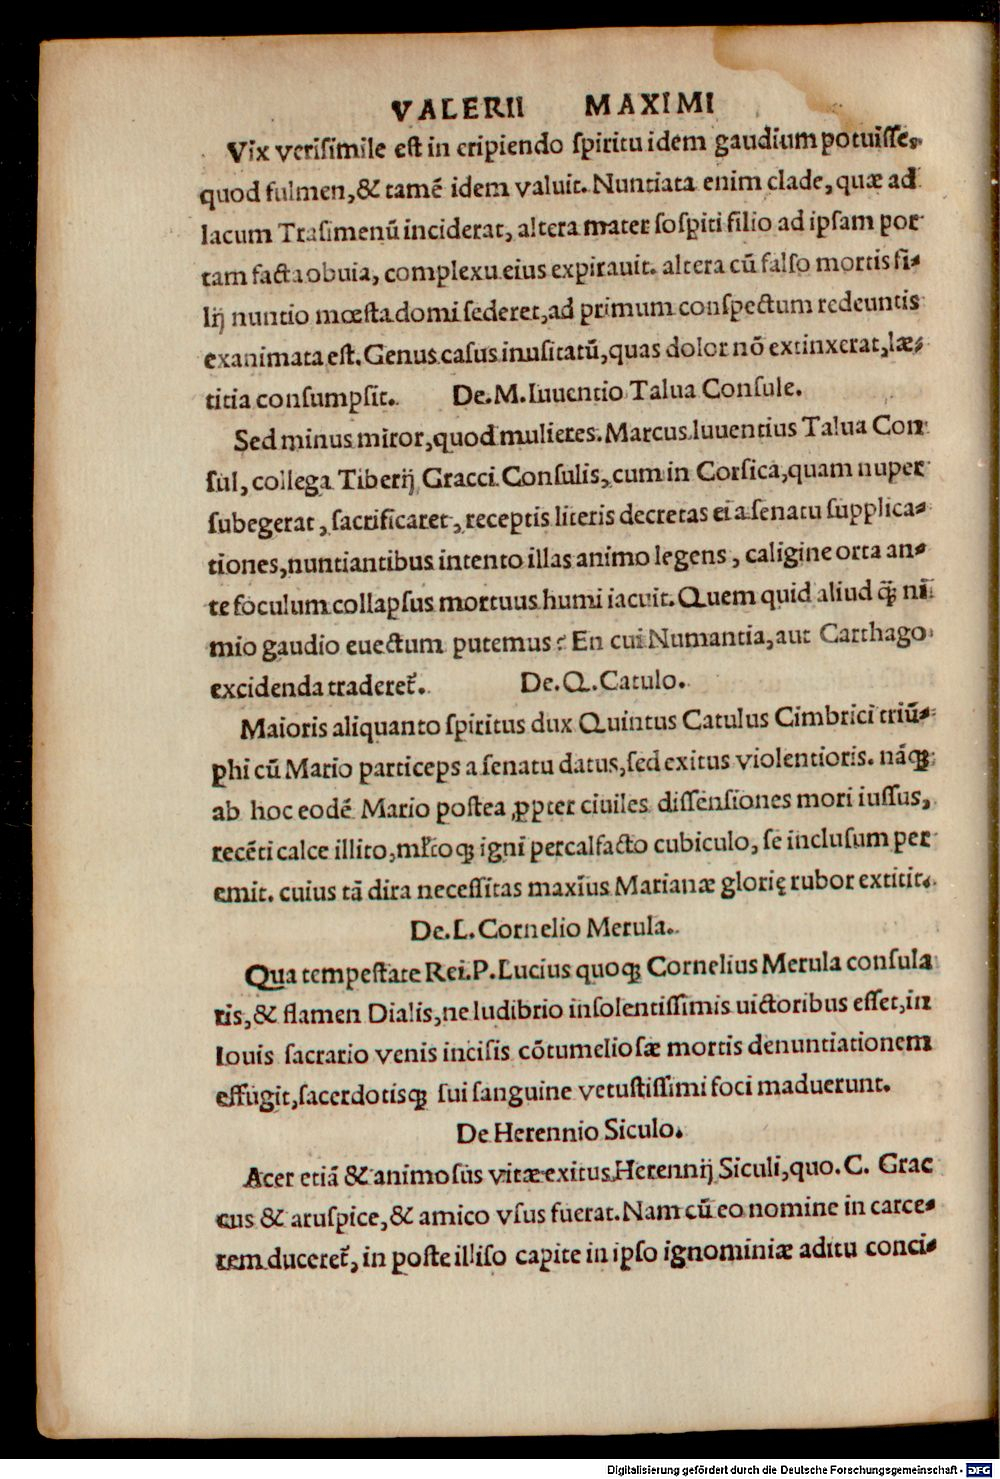 VALERII MAXIMI
Vix verisimile est in eripiendo spiritu idem gaudium potuisse,
quod fulmen, & tamē idem valuit. Nuntiata enim clade, quæ ad
lacum Trasimenū inciderat, altera mater sospiti filio ad ipsam por
tam facta obuia, complexu eius expirauit. altera cū falso mortis fi-
lij nuntio mœsta domi sederet, ad primum conspectum redeuntis
exanimata est. Genus casus inusitatū, quas dolor nō extinxerat, læ-
titia consumpsit. De. M. Iuuentio Talua Consule.
Sed minus miror, quod mulieres. Marcus Iuuentius Talua Con
sul, collega Tiberij Gracci Consulis, cum in Corsica, quam nuper
subegerat, sacrificaret, receptis literis decretas ei a senatu supplica-
tiones, nuntiantibus intento illas animo legens, caligine orta an-
te foculum collapsus mortuus humi iacuit. Quem quid aliud q̃ ni
mio gaudio euectum putemus? En cui Numantia, aut Carthago
excidenda traderet̃. De. Q. Catulo.
Maioris aliquanto spiritus dux Quintus Catulus Cimbrici triū-
phi cū Mario particeps a senatu datus, sed exitus violentioris. nāqꝫ
ab hoc eodē Mario postea ꝓpter ciuiles dissensiones mori iussus,
recēti calce illito, ml̃toqꝫ igni percalfacto cubiculo, se inclusum per
emit. cuius tā dira necessitas maxīus Marianæ glorię rubor extitit.
De. L. Cornelio Merula.
Qua tempestate Rei. P. Lucius quoqꝫ Cornelius Merula consula
ris, & flamen Dialis, ne ludibrio insolentissimis uictoribus esset, in
Iouis sacrario venis incisis cōtumeliosæ mortis denuntiationem
effugit, sacerdotisqꝫ sui sanguine vetustissimi foci maduerunt.
De Herennio Siculo.
Acer etiā & animosus vitæ exitus Herennij Siculi, quo. C. Grac
cus & aruspice, & amico vsus fuerat. Nam cū eo nomine in carce-
rem duceret̃, in poste illiso capite in ipso ignominiæ aditu conci-
Digitalisierung gefördert durch die Deutsche Forschungsgemeinschaft - DFG